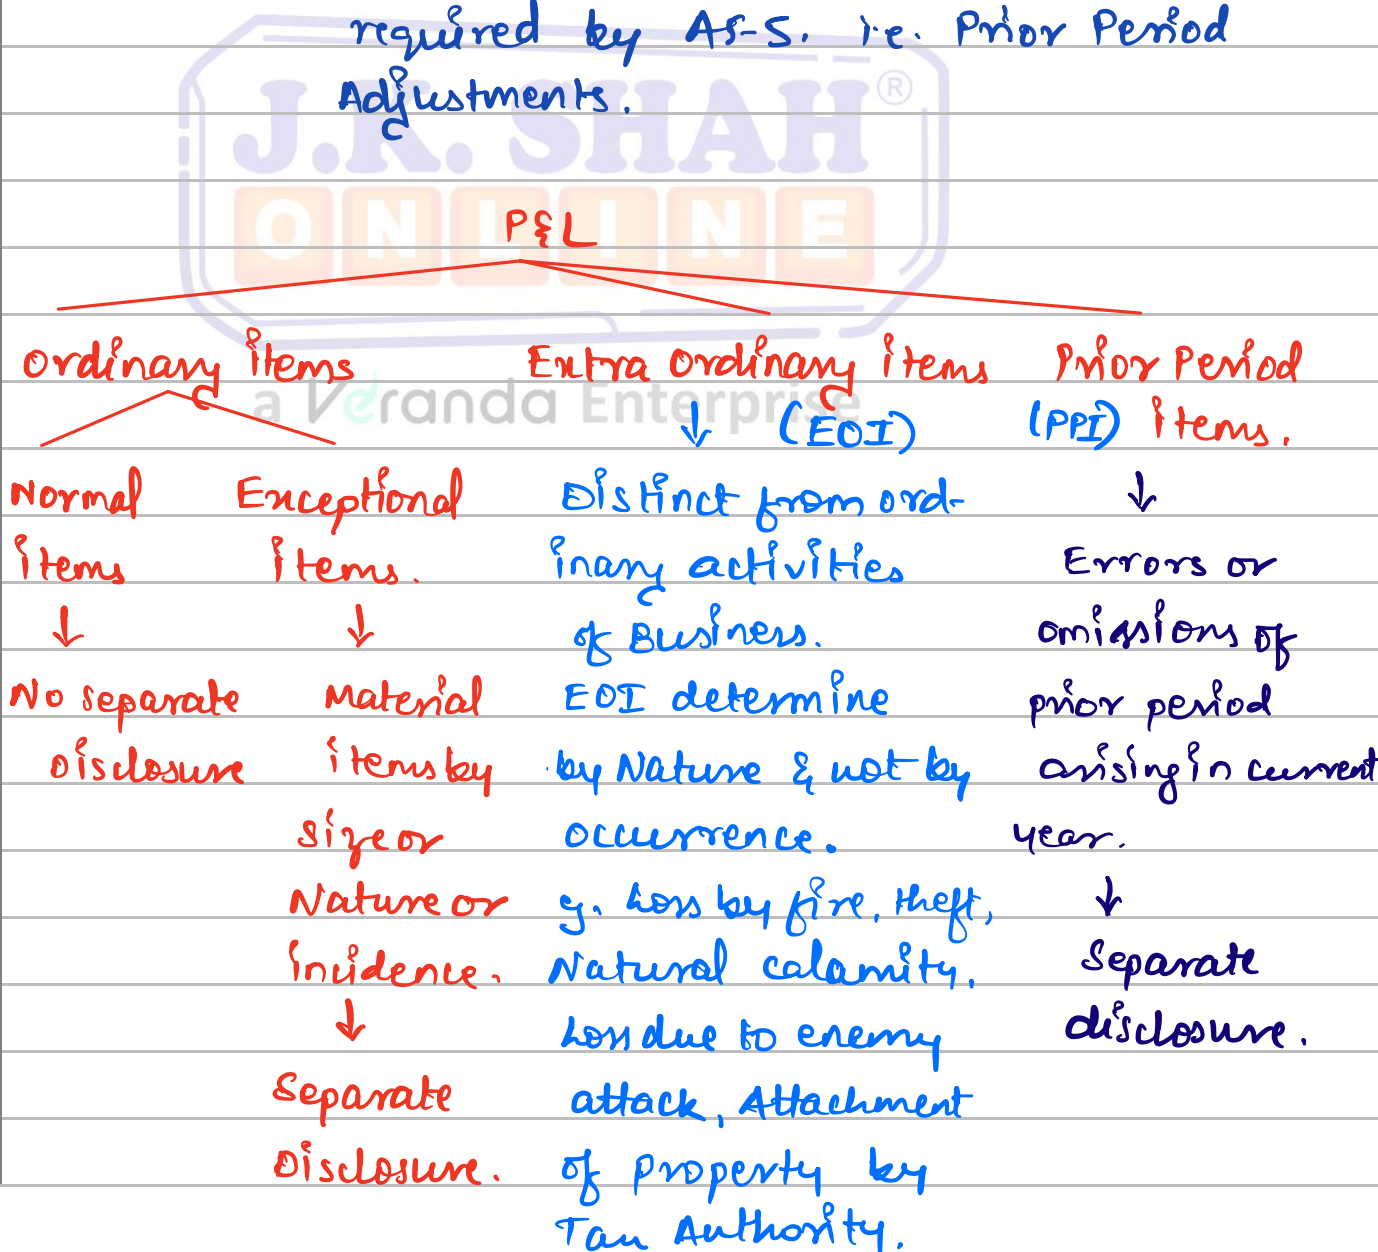 required by AS-5. i.e. Prior Period
Adjustments.
J.K. SHAH®
ONLINE
a Veranda Enterprise
P&L
Ordinary items
Normal items
↓
No separate
Disclosure
Exceptional
items.
↓
Material
items by
Size or
Nature or
incidence.
↓
Separate
Disclosure.
Extra Ordinary items
↓ (EOI)
Distinct from ord-
inary activities
of Business.
EOI determine
by Nature & not by
occurrence.
eg. Loss by fire, theft,
Natural calamity.
Loss due to enemy
attack, Attachment
of property by
Tax Authority.
Prior Period
(PPI) items.
↓
Errors or
omissions of
prior period
arising in current
year.
↓
Separate
disclosure.